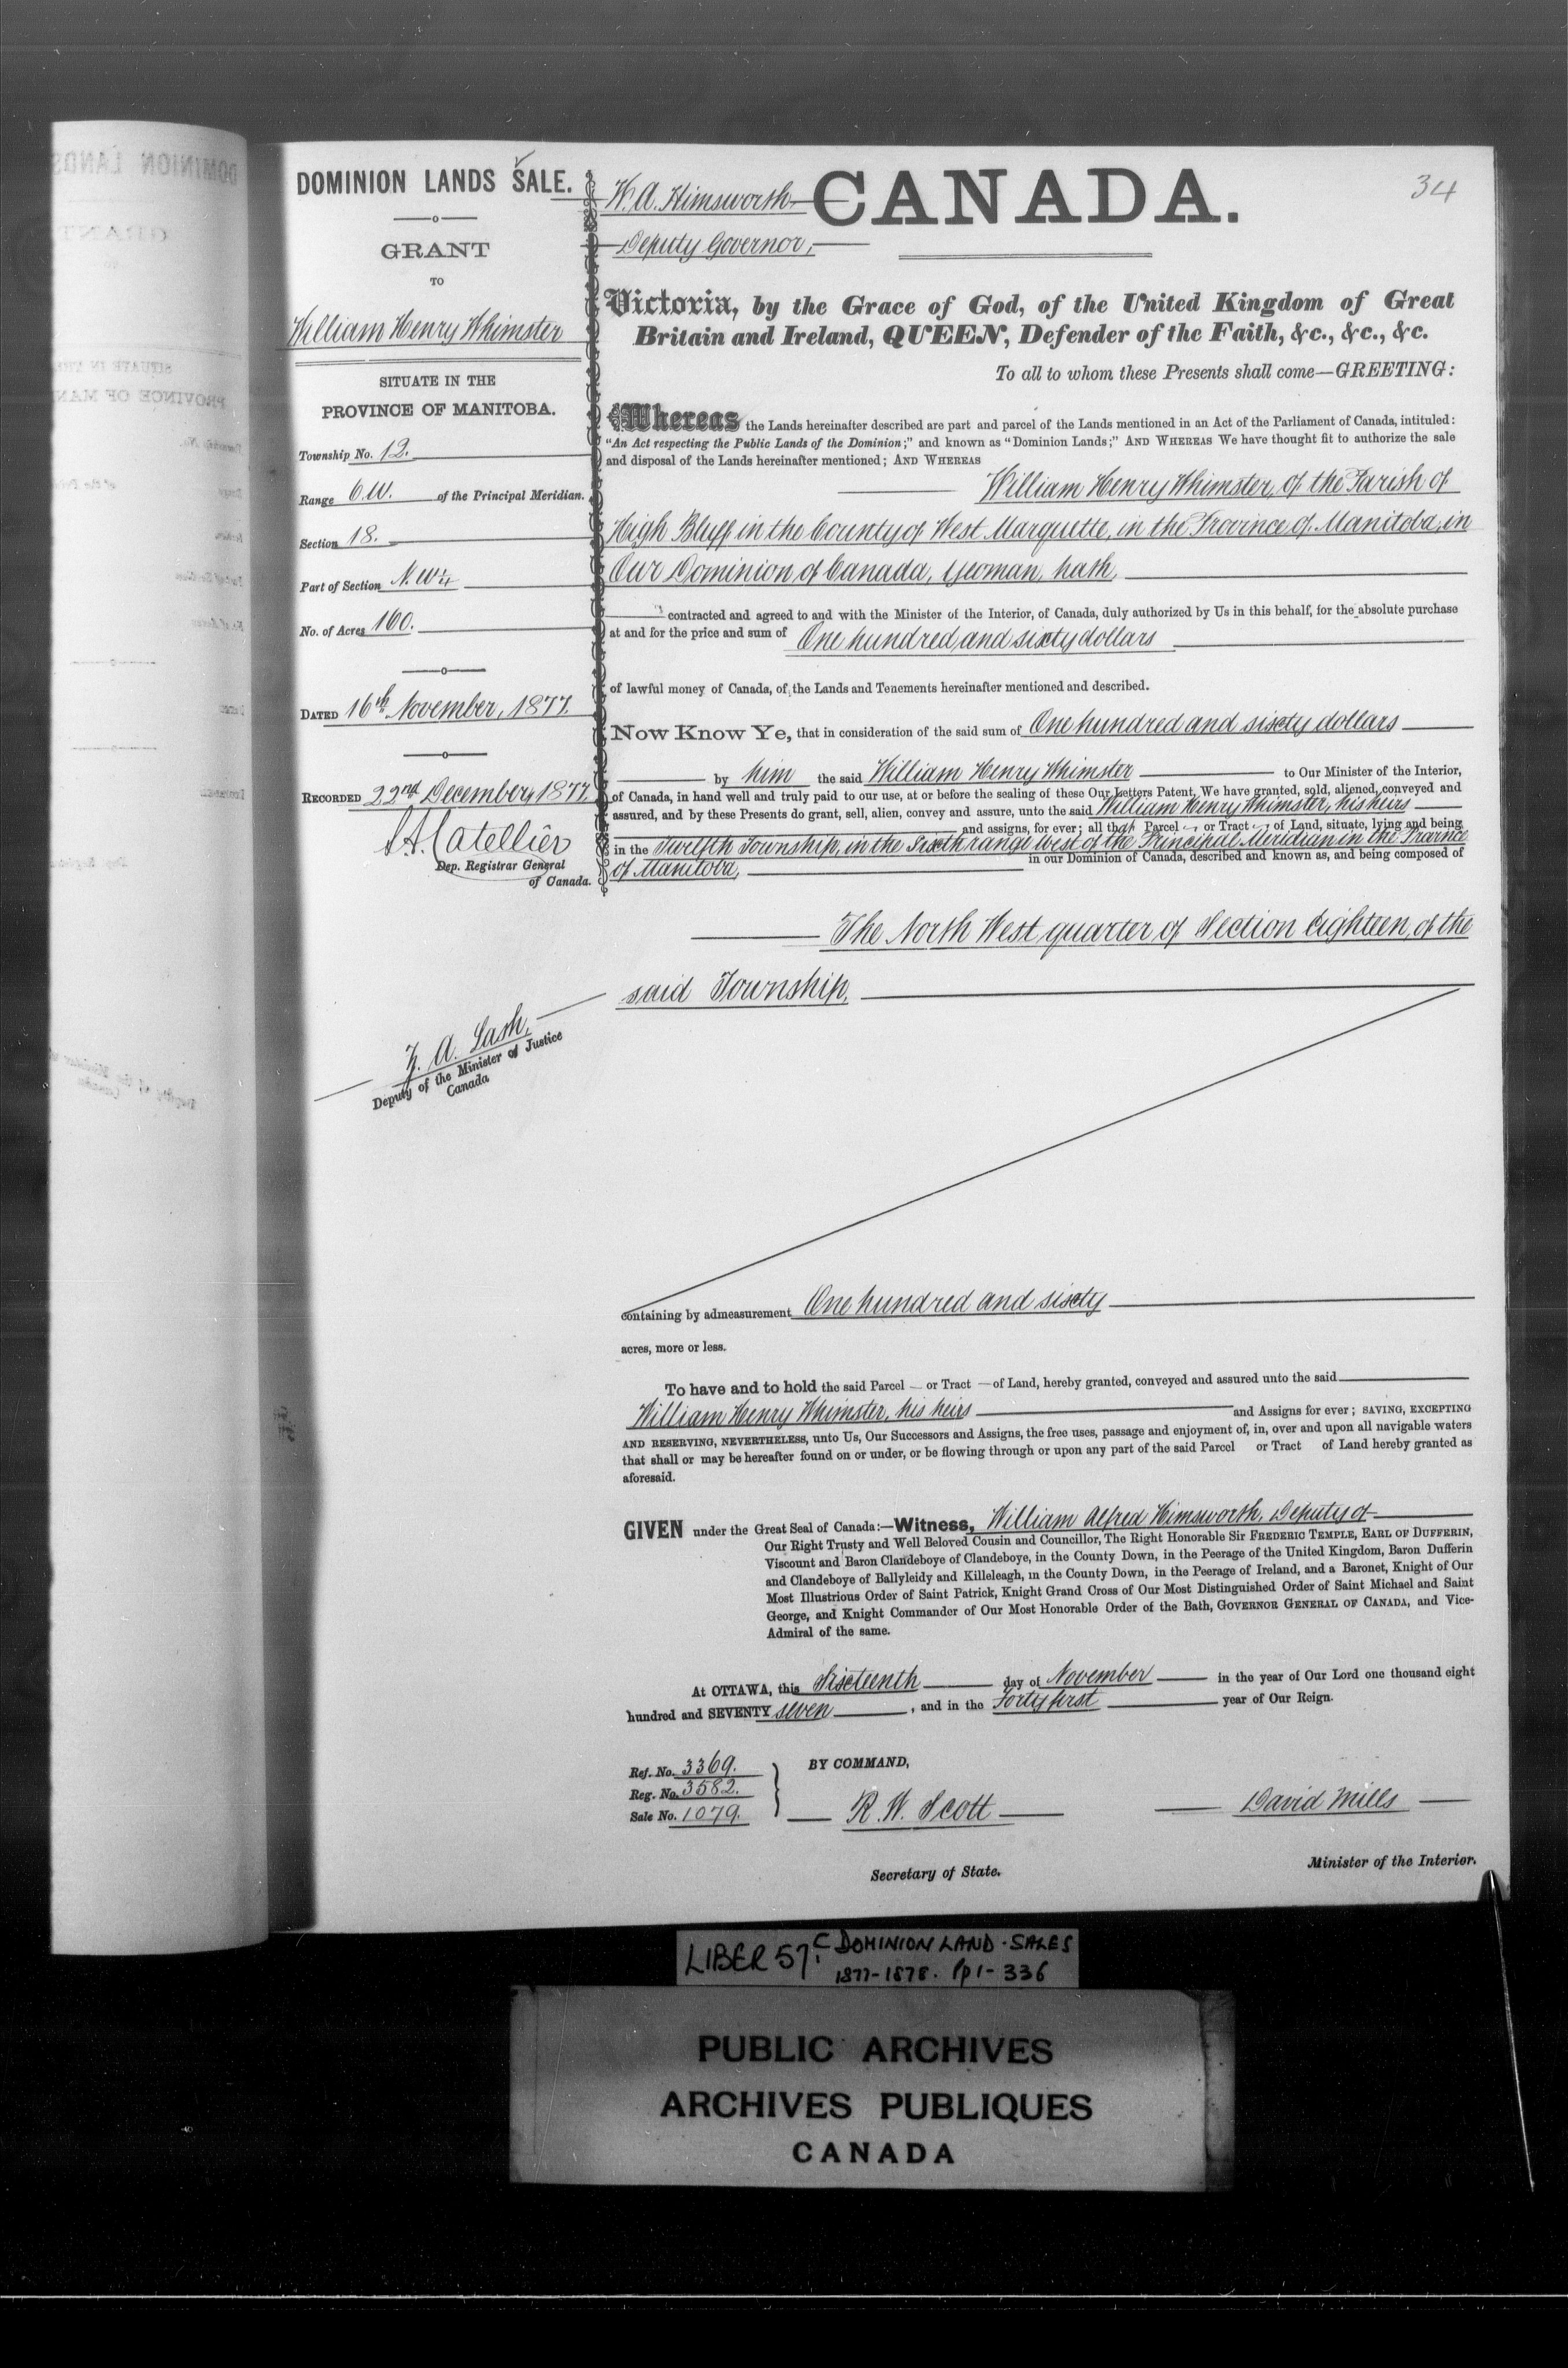 34
DOMINION LANDS SALE.
GRANT
TO
William Henry Whimster
SITUATE IN THE
PROVINCE OF MANITOBA.
Township No. 12.
Range 6 W. of the Principal Meridian.
Section 18.
Part of Section N.W¼
No. of Acres 160.
DATED 16th November, 1877.
RECORDED 22nd December, 1877.
L.A. Catellier
Dep. Registrar General
of Canada.
Z. A. Lash,
Deputy of the Minister of Justice
Canada
W. A. Himsworth
Deputy Governor,
CANADA.
Victoria, by the Grace of God, of the United Kingdom of Great
Britain and Ireland, QUEEN, Defender of the Faith, &c., &c., &c.
To all to whom these Presents shall come—GREETING:
Whereas the Lands hereinafter described are part and parcel of the Lands mentioned in an Act of the Parliament of Canada, intituled:
"An Act respecting the Public Lands of the Dominion;" and known as "Dominion Lands;" AND WHEREAS We have thought fit to authorize the sale
and disposal of the Lands hereinafter mentioned; AND WHEREAS
William Henry Whimster, of the Parish of
High Bluff in the County of West Marquette, in the Province of Manitoba, in
Our Dominion of Canada, Yeoman, hath,
contracted and agreed to and with the Minister of the Interior, of Canada, duly authorized by Us in this behalf, for the absolute purchase
at and for the price and sum of One hundred and sixty dollars
of lawful money of Canada, of the Lands and Tenements hereinafter mentioned and described.
Now Know Ye, that in consideration of the said sum of One hundred and sixty dollars
by him the said William Henry Whimster to Our Minister of the Interior,
of Canada, in hand well and truly paid to our use, at or before the sealing of these Our Letters Patent, We have granted, sold, aliened, conveyed and
assured, and by these Presents do grant, sell, alien, convey and assure, unto the said William Henry Whimster, his heirs
and assigns, for ever; all that Parcel or Tract of Land, situate, lying and being
in the Twelfth Township, in the Sixth range west of the Principal Meridian in the Province
of Manitoba, in our Dominion of Canada, described and known as, and being composed of
The North West quarter of Section Eighteen, of the
said Township.
containing by admeasurement One hundred and sixty
acres, more or less.
To have and to hold the said Parcel or Tract of Land, hereby granted, conveyed and assured unto the said
William Henry Whimster, his heirs and Assigns for ever; SAVING, EXCEPTING
AND RESERVING, NEVERTHELESS, unto Us, Our Successors and Assigns, the free uses, passage and enjoyment of, in, over and upon all navigable waters
that shall or may be hereafter found on or under, or be flowing through or upon any part of the said Parcel or Tract of Land hereby granted as
aforesaid.
GIVEN under the Great Seal of Canada:—Witness, William Alfred Himsworth, Deputy of
Our Right Trusty and Well Beloved Cousin and Councillor, The Right Honorable Sir FREDERIC TEMPLE, EARL OF DUFFERIN,
Viscount and Baron Clandeboye of Clandeboye, in the County Down, in the Peerage of the United Kingdom, Baron Dufferin
and Clandeboye of Ballyleidy and Killeleagh, in the County Down, in the Peerage of Ireland, and a Baronet, Knight of Our
Most Illustrious Order of Saint Patrick, Knight Grand Cross of Our Most Distinguished Order of Saint Michael and Saint
George, and Knight Commander of Our Most Honorable Order of the Bath, GOVERNOR GENERAL OF CANADA, and Vice-
Admiral of the same.
At OTTAWA, this Sixteenth day of November in the year of Our Lord one thousand eight
hundred and SEVENTY seven, and in the Forty first year of Our Reign.
Ref. No. 3369.
Reg. No. 3582.
Sale No. 1079.
BY COMMAND,
R. W. Scott
Secretary of State.
David Mills
Minister of the Interior.
LIBER 57: C DOMINION LAND · SALES
1877-1878. pp 1-336
PUBLIC ARCHIVES
ARCHIVES PUBLIQUES
CANADA